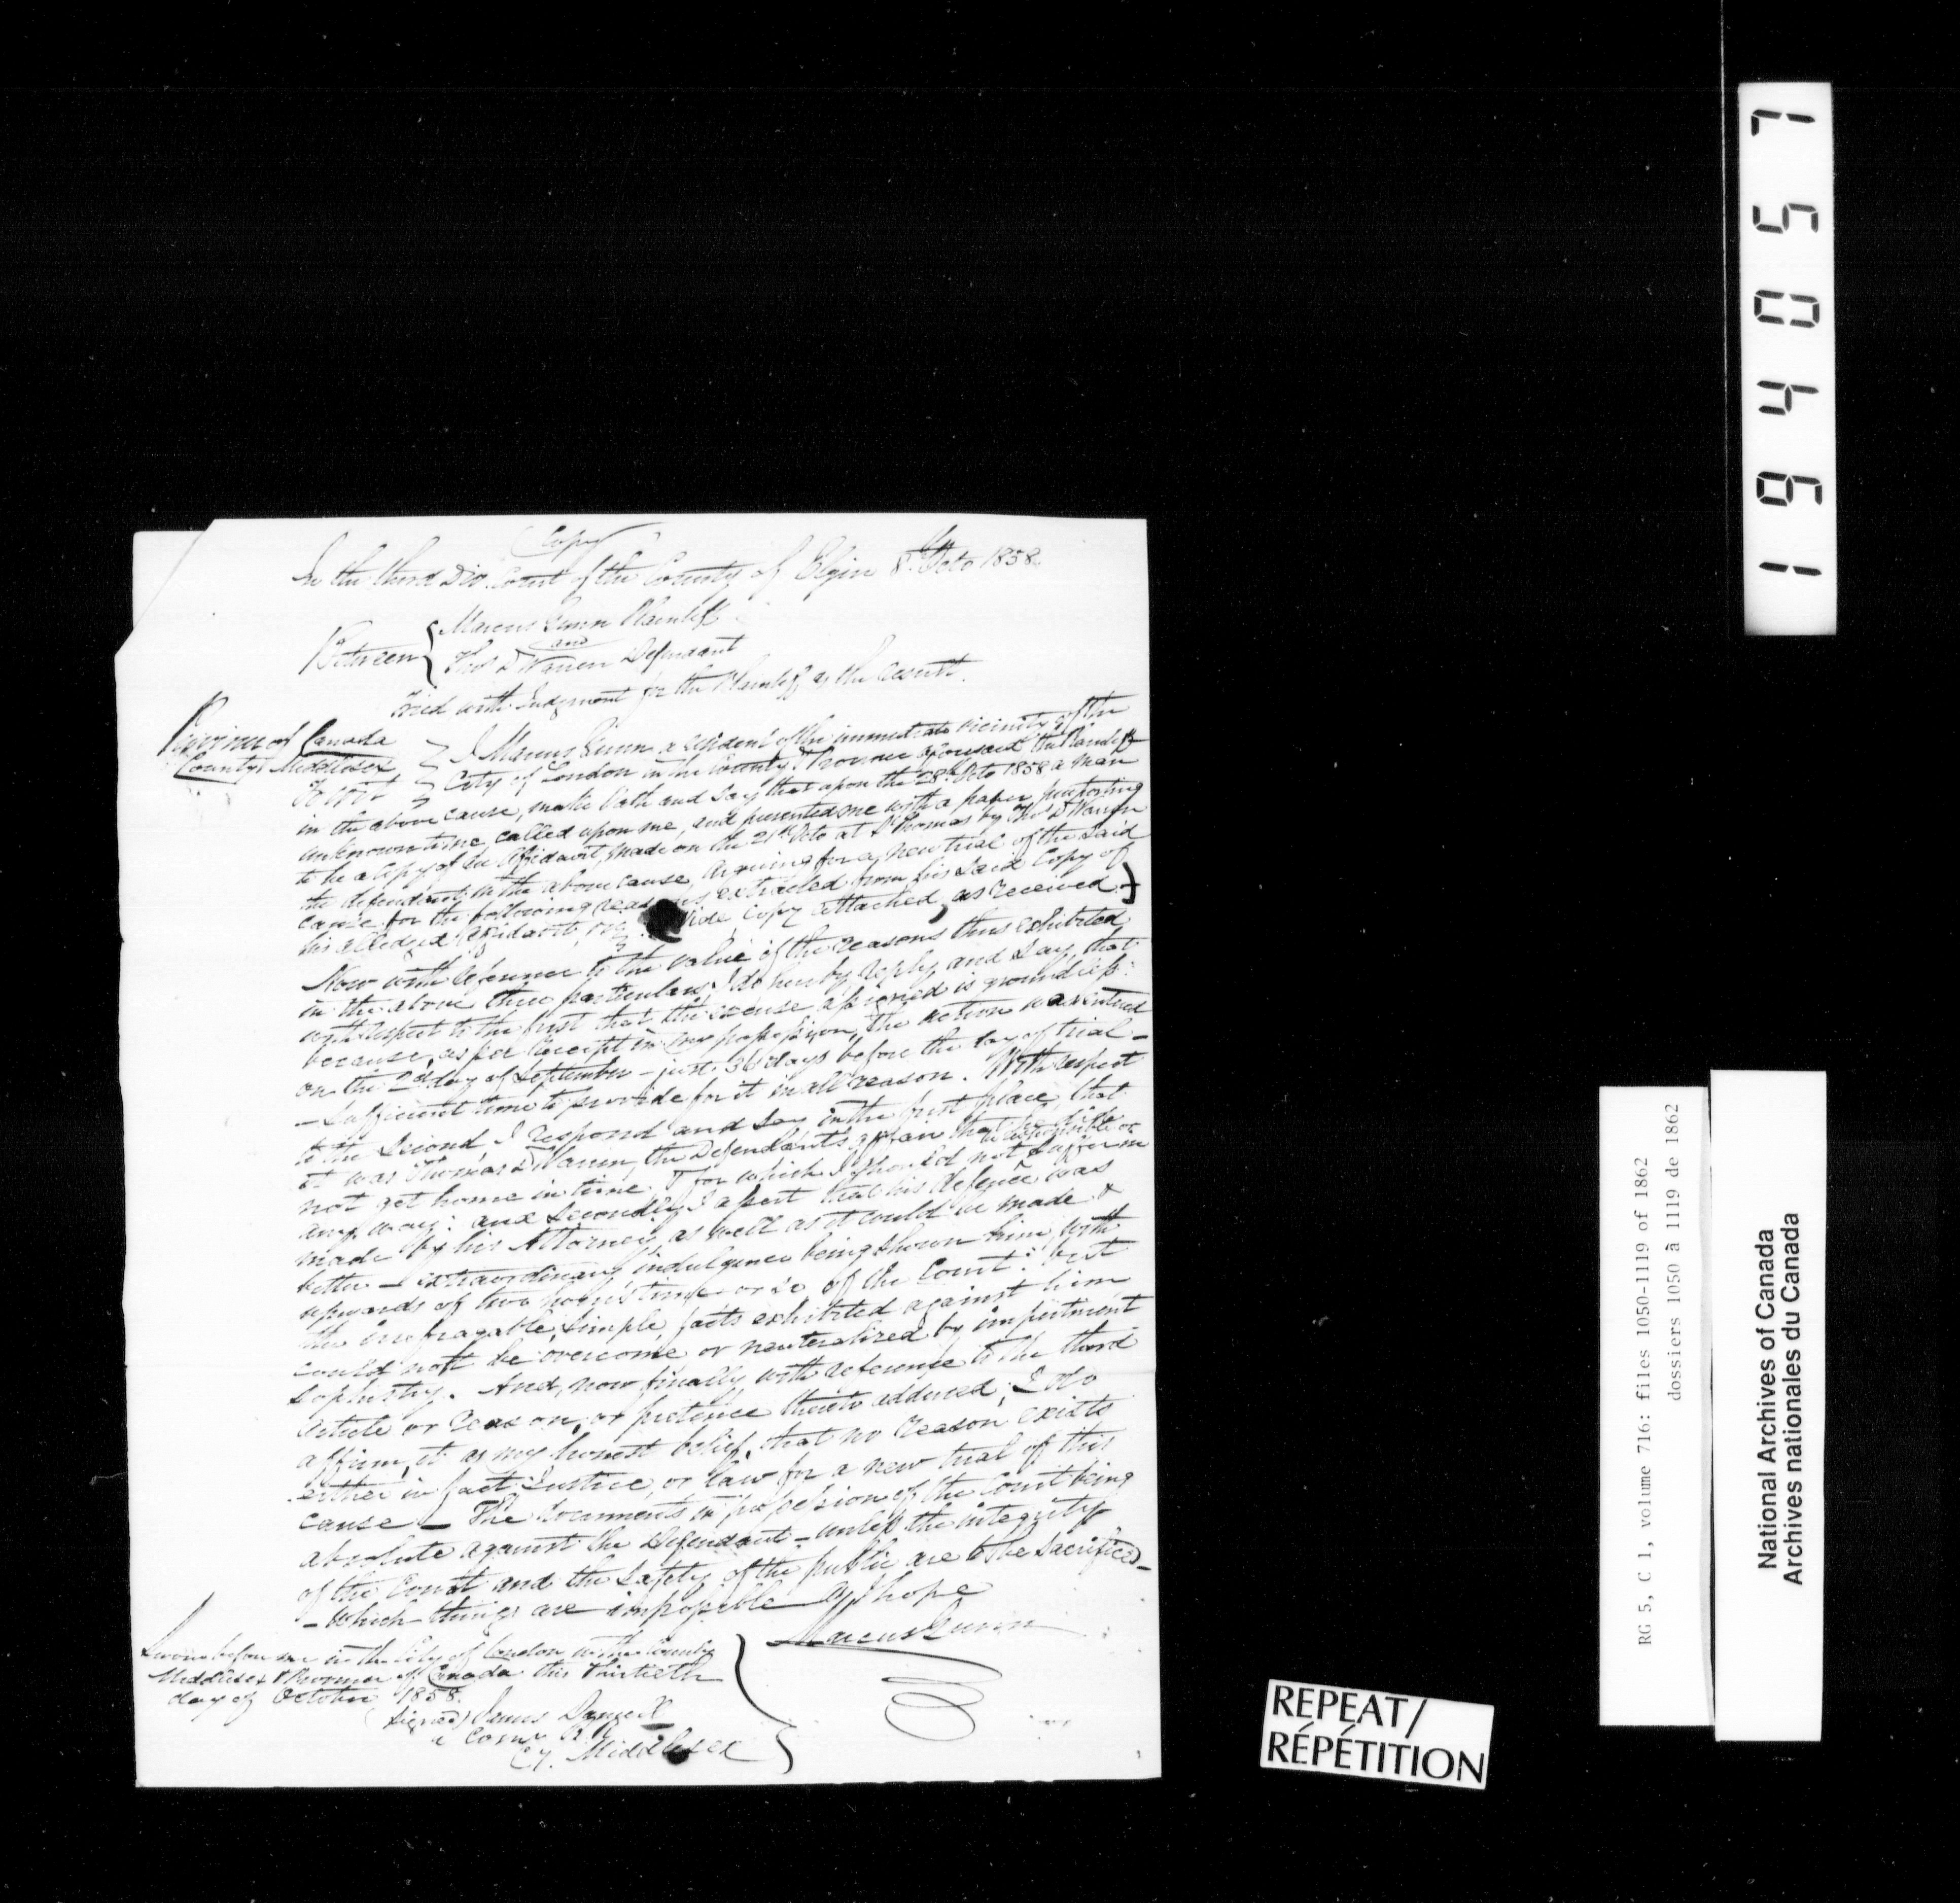 Copy
In the third Div. Court of the County of Elgin 8th Octo 1858.
Between { Marcus Gunn Plaintiff
and
Thos D Warren Defendant
Tried with Judgment for the Plaintiff as the result.
Province of Canada
County of Middlesex
To Wit
I Marcus Gunn a resident of the immediate vicinity of the
City of London in the County & Province aforesaid the Plaintiff
in the above cause, make Oath and Say that upon the 28th Octo 1858 a man
unknown to me, called upon me, and presented me with a paper, purporting
to be a Copy of an Affidavit, made on the 21st Octo at St Thomas by Thos D Warren
the defendant in the above cause, arguing for a new trial of the said
cause for the following reasons extracted from his said Copy of
his alledged affidavit, viz Vide, Copy attached, as received }
Now with reference to the value of the reasons thus exhibited
in the above three particulars, I do hereby reply, and say, that
with respect to the first that the excuse assigned is groundless:
because, as per Receipt in my possession, the action was entered
on the 2nd day of September – just 36 days before the day of trial –
– Sufficient time to provide for it in all reason. With respect
to the Second I respond and say in the first place, that
it was Thomas D Warren, the Defendants affair that he did
not get home in time & for which I should not be responsible or suffer in
any way: and Secondly, I assert that his defence was
made by his Attorney, as well as it could be made &
better – extraordinary indulgence being shown him, with
upwards of two hours time or so of the Court: but
the irrefragable, simple, facts exhibited against him
could not be overcome or neutralized by impertinent
Sophistry. And, now finally with reference to the third
article or reason, or pretence thereto adduced; I do
affirm, it as my honest belief, that no reason exists
either in fact Justice, or law for a new trial of this
cause – The documents in possession of the Court being
absolute against the Defendant – unless the integrity
of the Court and the safety of the public are to be sacrificed –
– Which things are impossible as I hope
Marcus Gunn
Sworn before me in the City of London in the County
Middlesex & Province of Canada this thirtieth
day of October 1858.
(Signed) James
a Comr B R
Cy. Middlesex
194057
RG 5, C 1, volume 716: files 1050-1119 of 1862
dossiers 1050 à 1119 de 1862
National Archives of Canada
Archives nationales du Canada
REPEAT/
RÉPÉTITION